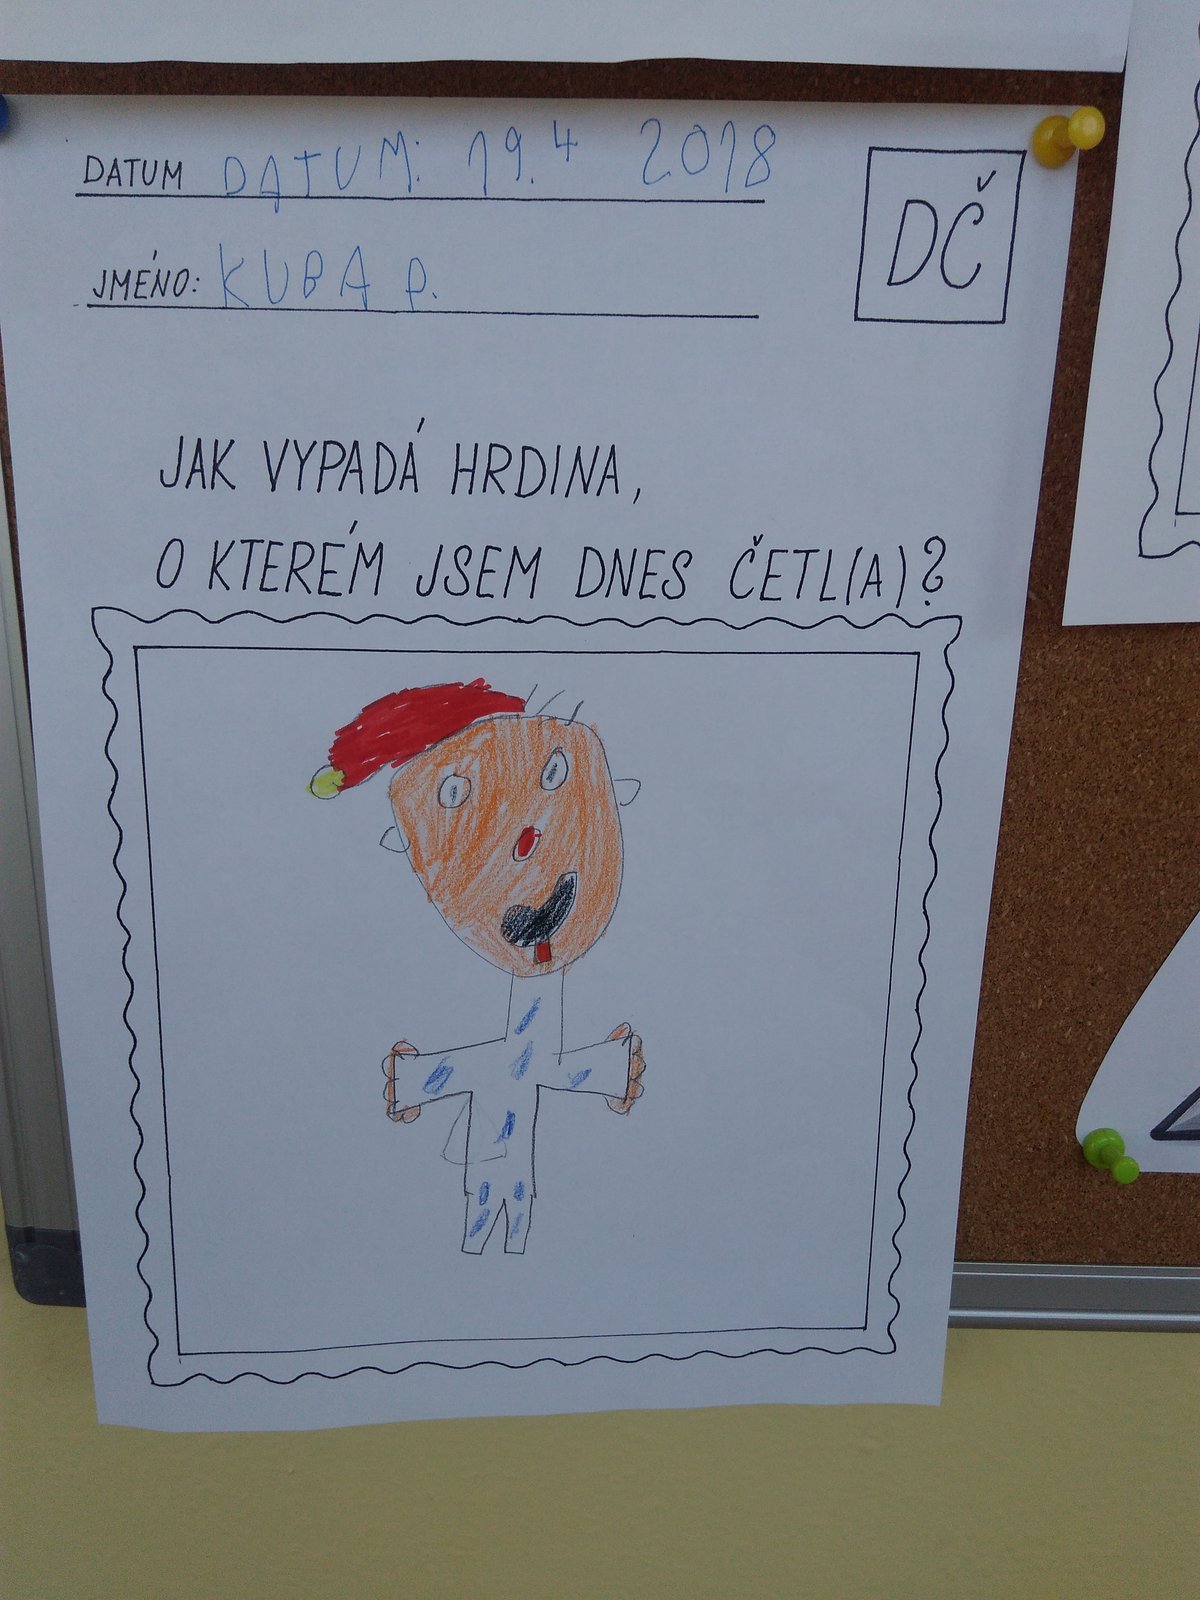 DATUM DATUM: 19.4 2018
DČ
JMÉNO: KUBA P.
JAK VYPADÁ HRDINA,
O KTERÉM JSEM DNES ČETL(A)?